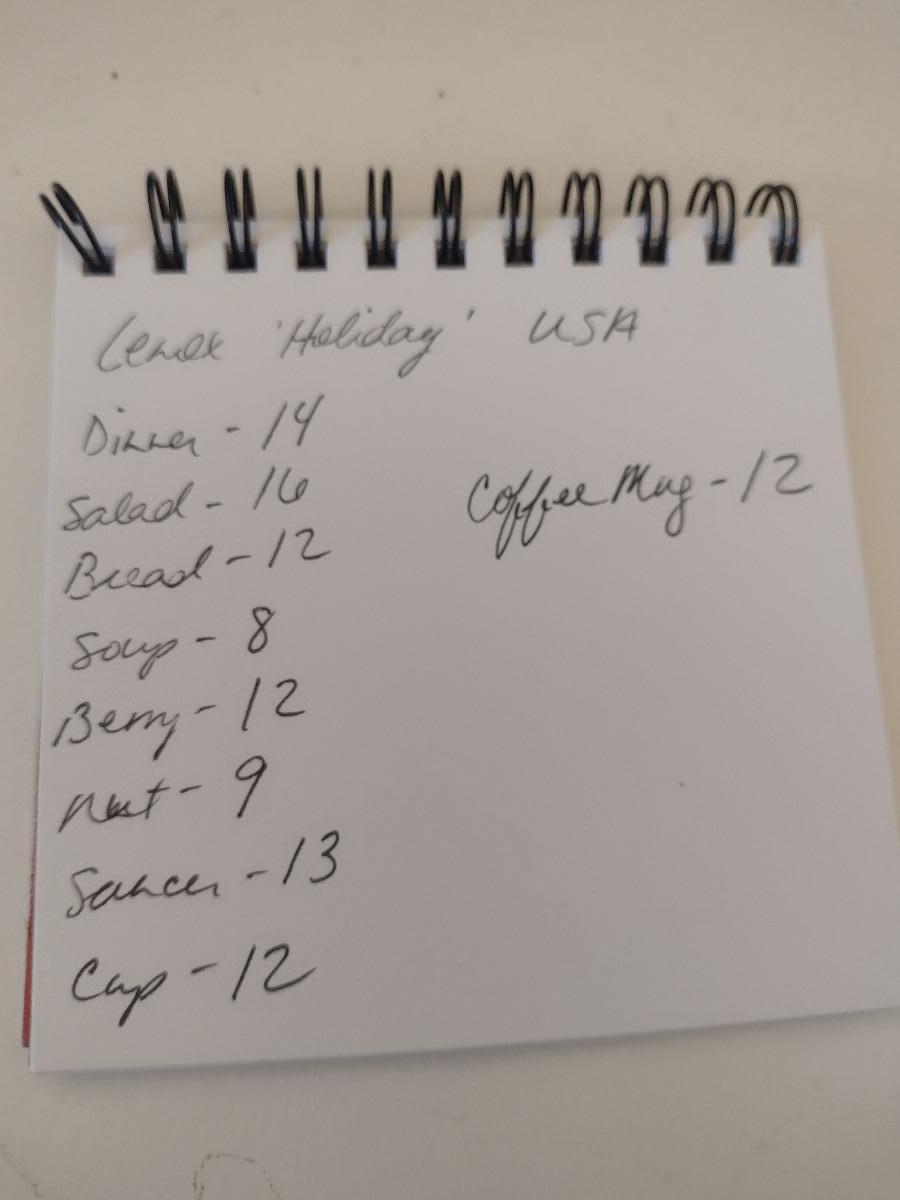 Lenox 'Holiday' USA
Dinner - 14
Salad - 16
Bread - 12
Soup - 8
Berry - 12
Nut - 9
Saucer - 13
Cup - 12
Coffee Mug - 12